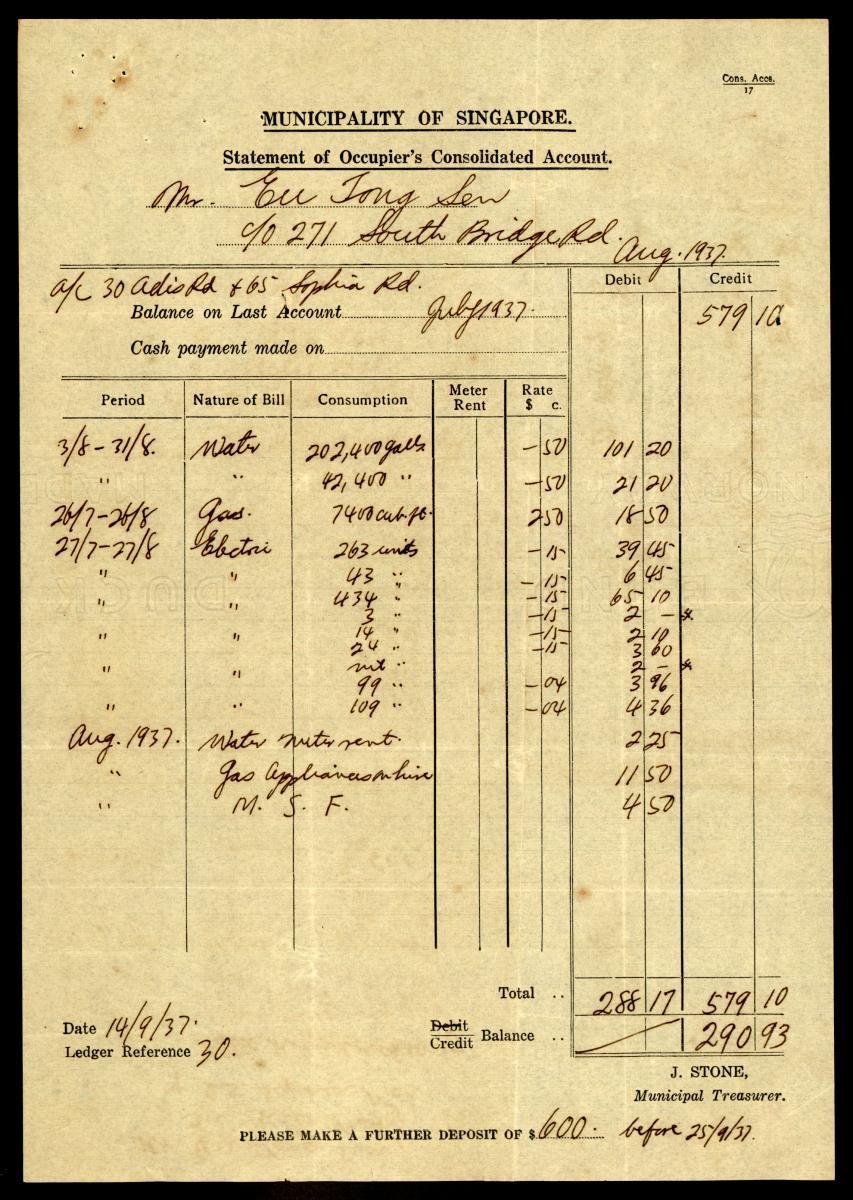 Cons. Accs.
17
MUNICIPALITY OF SINGAPORE.
Statement of Occupier's Consolidated Account.
Mr. Eu Tong Sen
c/o 271 South Bridge Rd.
Aug. 1937.
a/c 30 Adis Rd & 65 Sophia Rd. Debit Credit
Balance on Last Account July 1937. 579 10
Cash payment made on
Period Nature of Bill Consumption Meter Rent Rate $ c.
3/8 - 31/8. Water 202,400 galls - 50 101 20
" " 42,400 " - 50 21 20
26/7 - 26/8 Gas. 7400 cub. ft. 2 50 18 50
27/7 - 27/8 Electric 263 units - 15 39 45
" " 43 " - 15 6 45
" " 434 " - 15 65 10
3 " - 15 2 -
" " 14 " - 15 2 10
24 " - 15 3 60
nil " 2 -
" " 99 " - 04 3 96
" 109 " - 04 4 36
Aug. 1937. Water meter rent. 2 25
" Gas Appliances on hire 11 50
" M. S. F. 4 50
Total .. 288 17 579 10
Date 14/9/37. Debit
Credit Balance .. 290 93
Ledger Reference 30.
J. STONE,
Municipal Treasurer.
PLEASE MAKE A FURTHER DEPOSIT OF $ 600. before 25/9/37.